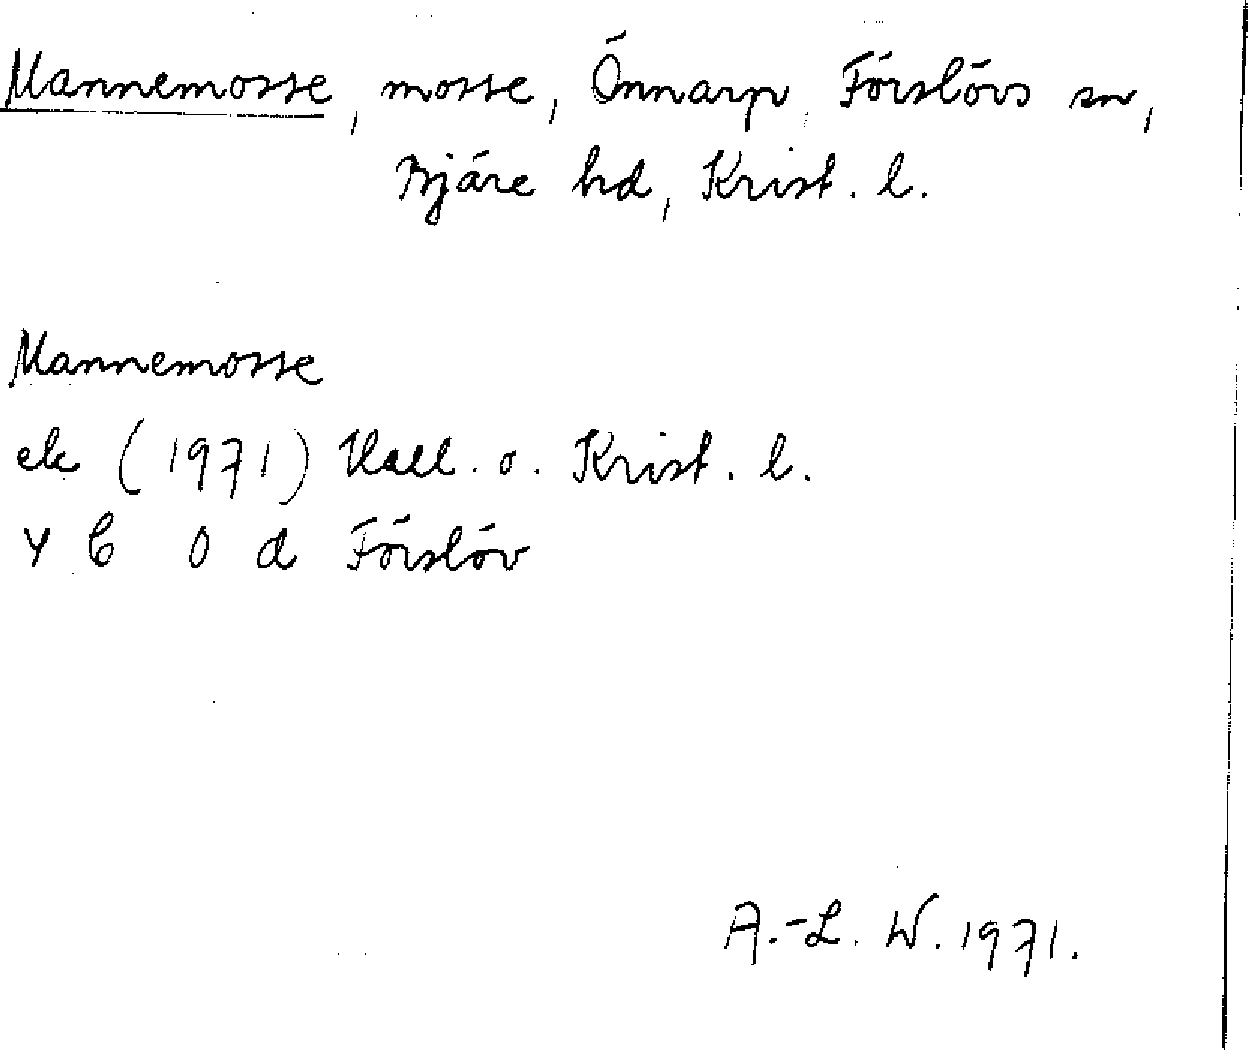 Mannemosse, mosse, Önnarp, Förslövs sn,
Bjäre hd, Krist. l.
Mannemosse
ek (1971) Hall. o. Krist. l.
4 C 0 d Förslöv
A.-L. W. 1971.